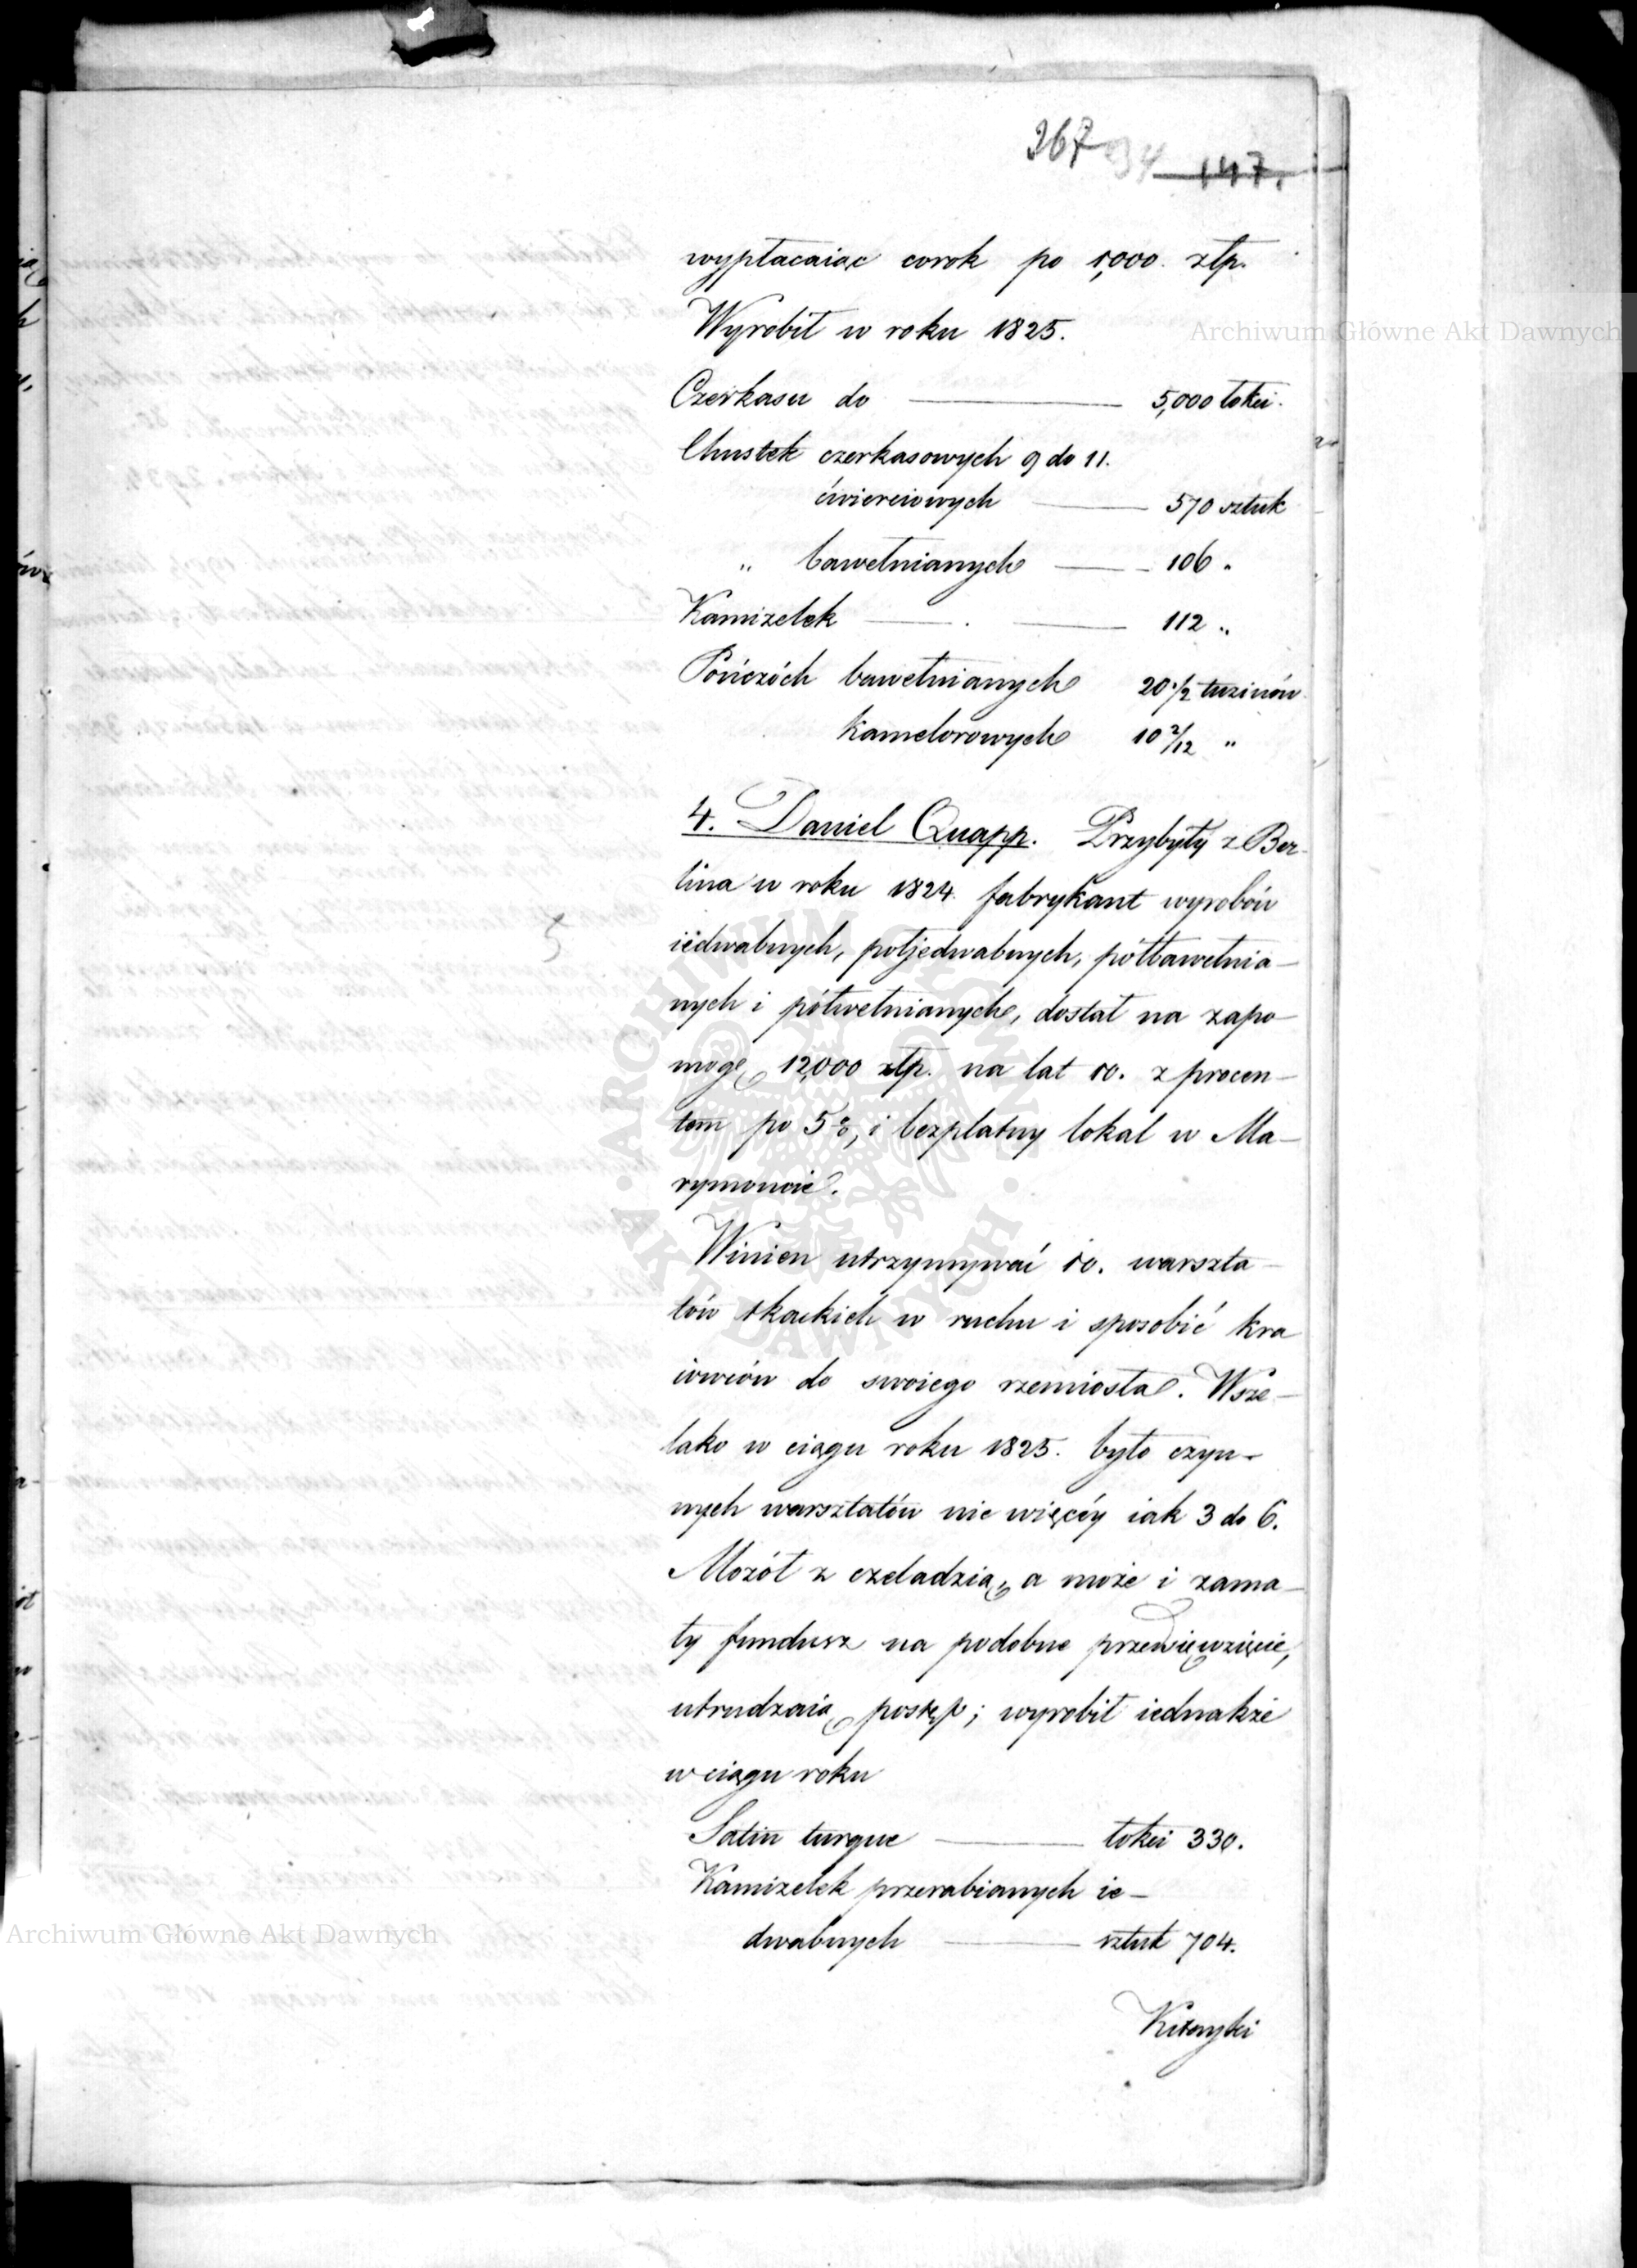 367 94 147.
wypłacaiąc corok po 1,000. złp.
Wyrobił w roku 1825.
Archiwum Główne Akt Dawnych
Czerkasu do — 5,000 łokci.
Chustek czerkasowych 9 do 11.
ćwierciowych — 570 sztuk
„ bawełnianych — 106 „
Kamizelek — 112 „
Pończóch bawełnianych 20 1/2 tuzinów
Kamelorowych 10 2/12 „
4. Daniel Quapp. Przybyły z Ber-
lina w roku 1824. fabrykant wyrobów
iedwabnych, półjedwabnych, półbawełnia-
nych i półwełnianych, dostał na zapo-
mogę 12,000 złp. na lat 10. z procen-
tem po 5%, i bezpłatny lokal w Ma-
rymoncie.
Winien utrzymywać 10. warszta-
tów tkackich w ruchu i sposobić kra
iowców do swoiego rzemiosła. Wsze-
lako w ciągu roku 1825. było czyn-
nych warsztatów nie więcéy iak 3 do 6.
Mozół z czeladzią, a może i zama-
ły fundusz na podobne przedwięwzięcie,
utrudzaią postęp; wyrobił iednakże
w ciągu roku
Satin turque — łokci 330.
Kamizelek przerabianych ie-
dwabnych — sztuk 704.
Archiwum Główne Akt Dawnych
ARCHIWUM GŁÓWNE AKT DAWNYCH